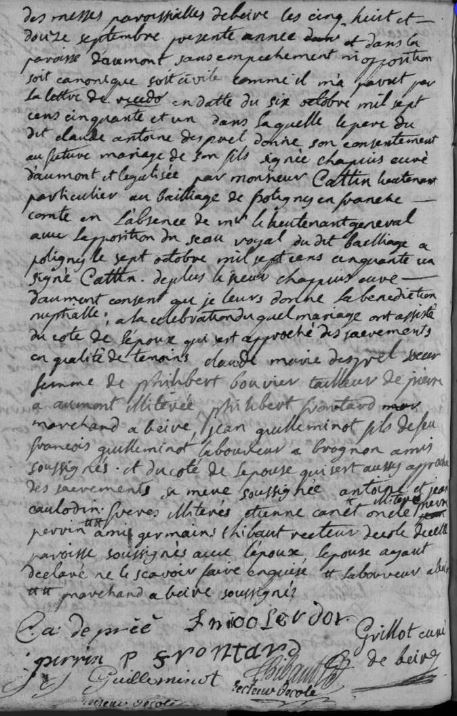 des messes paroissialles de beire les cinq huit et
douze septembre presente année et dans la
paroisse daumont sans empechement ni opposition
soit canonique soit civile comme il m'a parut par
la lettre de recedo en datte du six octobre mil sept
cens cinquante et un dans laquelle le pere du
dit claude antoine desprel donne son consentement
au future mariage de son fils signée chapuis curé
daumont et legalisée par monsieur Cattin lieutenant
particulier au bailliage de poligny en franche
comte en l'absence de mr le lieutenant general
avec lapposition du seau royal du dit bailliage a
poligny le sept octobre mil sept cens cinquante un
signé Cattin. de plus le sieur chappuis curé
daumont consent que je leurs donne la benediction
nuptialle; a la celebration duquel mariage ont assisté
du coté de lépoux qui sest approché des sacrements
en qualité de temoins claude marie desprel soeur
femme de philibert bouvier tailleur de pierre
a aumont illiterée philibert frontard
marchand a beire, jean guilleminot fils de feu
francois guilleminot laboureur a brognon amis
soussignés. et du coté de lepouse qui sest aussy approchée
des sacrements sa mere soussignée antoine et jean
caulodin freres illiteres etienne canet oncle illiteré pierre
perrin ** ami germain thibaut recteur decole de cette
paroisse soussignés avec lépoux, lepouse ayant
declaré ne le scavoir faire enquise ** laboureur a beire
** marchand a beire soussignés
C a depréé nicole rdor
perrin P frontard Grillot curé
J Guilleminot Thibaut de beire
recteur décole
recteur décole